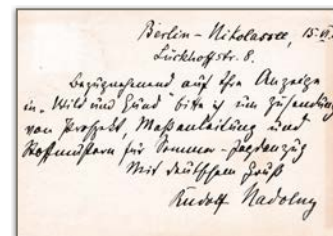 Berlin-Nikolassee, 15. VI.
Lückhoffstr. 8.
Bezugnehmend auf Ihre Anzeige
in „Wild und Hund" bitte ich um Zusendung
von Prospekt, Maßanleitung und
Stoffmustern für Sommer-Jagdanzug
Mit deutschem Gruß
Rudolf Nadolny